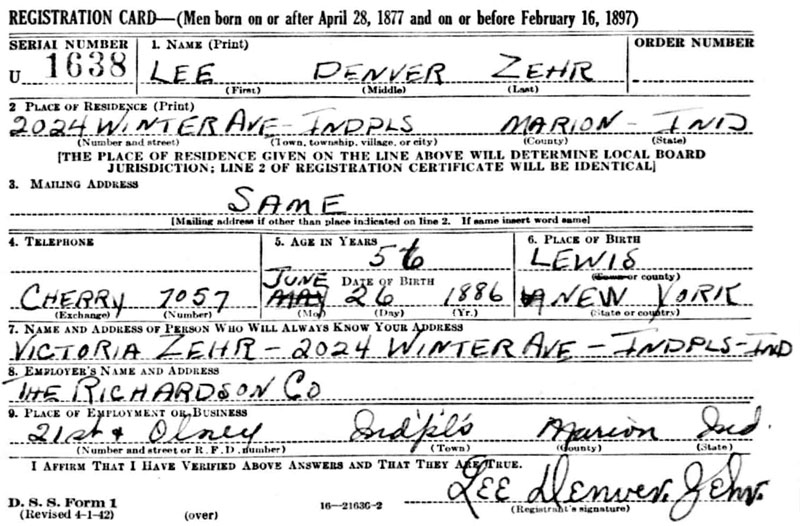 REGISTRATION CARD—(Men born on or after April 28, 1877 and on or before February 16, 1897)
SERIAL NUMBER 1. NAME (Print) ORDER NUMBER
U 1638 LEE DENVER ZEHR
(First) (Middle) (Last)
2 PLACE OF RESIDENCE (Print)
2024 WINTER AVE - INDPLS MARION - IND
(Number and street) (Town, township, village, or city) (County) (State)
[THE PLACE OF RESIDENCE GIVEN ON THE LINE ABOVE WILL DETERMINE LOCAL BOARD
JURISDICTION; LINE 2 OF REGISTRATION CERTIFICATE WILL BE IDENTICAL]
3. MAILING ADDRESS
SAME
[Mailing address if other than place indicated on line 2. If same insert word same]
4. TELEPHONE 5. AGE IN YEARS 6. PLACE OF BIRTH
56 LEWIS
(Town or county)
JUNE DATE OF BIRTH
CHERRY 7057 MAY 26 1886 NEW YORK
(Exchange) (Number) (Mo.) (Day) (Yr.) (State or country)
7. NAME AND ADDRESS OF PERSON WHO WILL ALWAYS KNOW YOUR ADDRESS
VICTORIA ZEHR - 2024 WINTER AVE - INDPLS - IND
8. EMPLOYER'S NAME AND ADDRESS
THE RICHARDSON CO
9. PLACE OF EMPLOYMENT OR BUSINESS
21st & Olney Ind'pl's Marion Ind.
(Number and street or R. F. D. number) (Town) (County) (State)
I AFFIRM THAT I HAVE VERIFIED ABOVE ANSWERS AND THAT THEY ARE TRUE.
Lee Denver Zehr.
D. S. S. Form 1 16—21630-2 (Registrant's signature)
(Revised 4-1-42) (over)